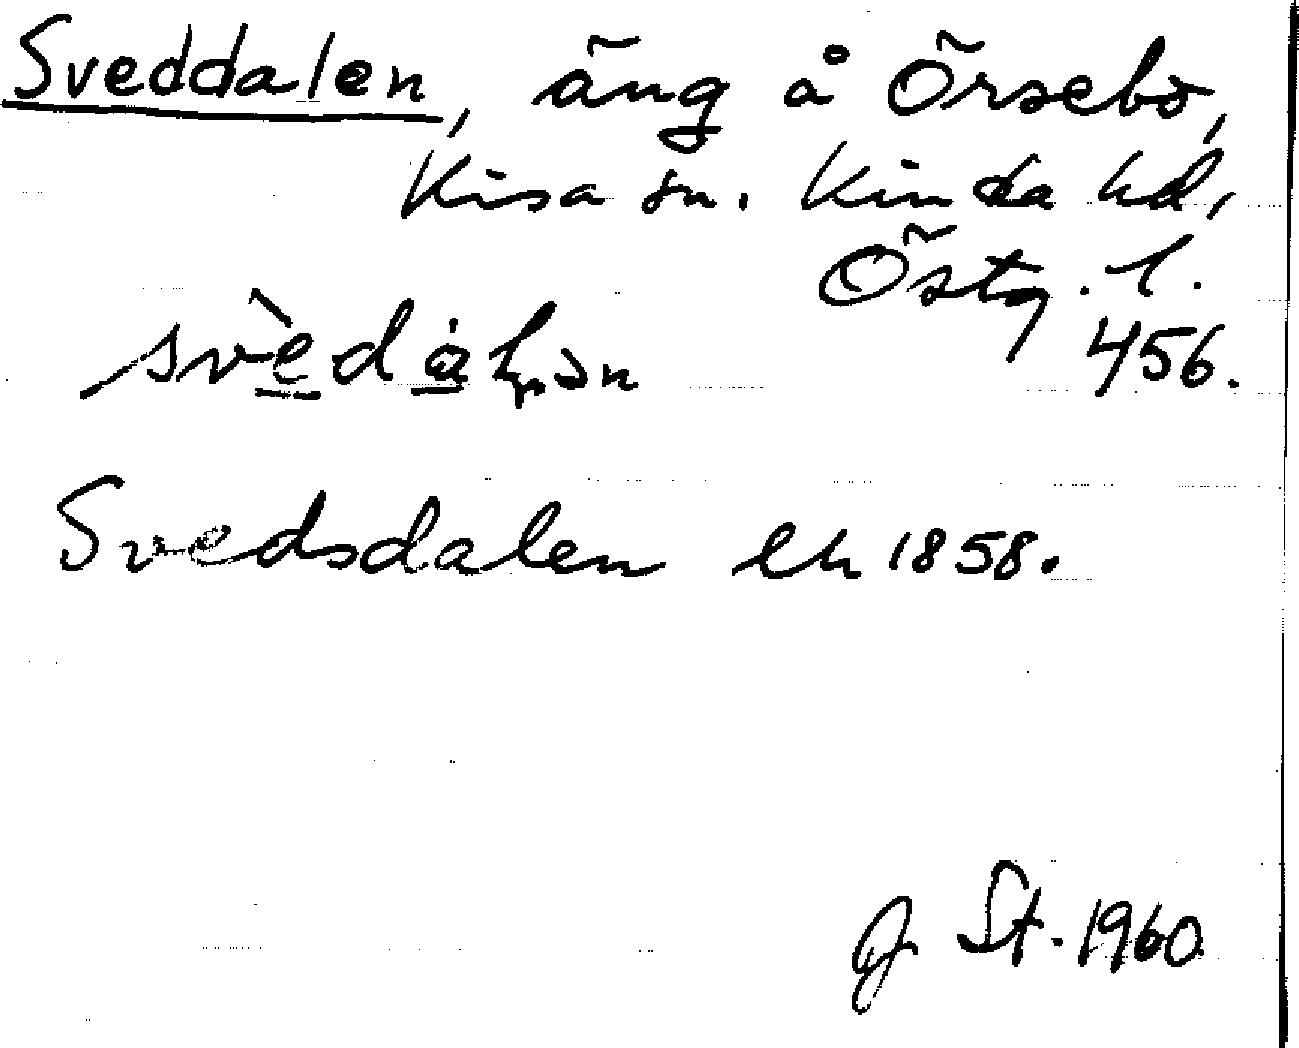 Sveddalen, äng å Örsebo,
Kisa sn. Kinda hd,
Östg. l.
456.
Svedsdalen lh 1858.
J St. 1960